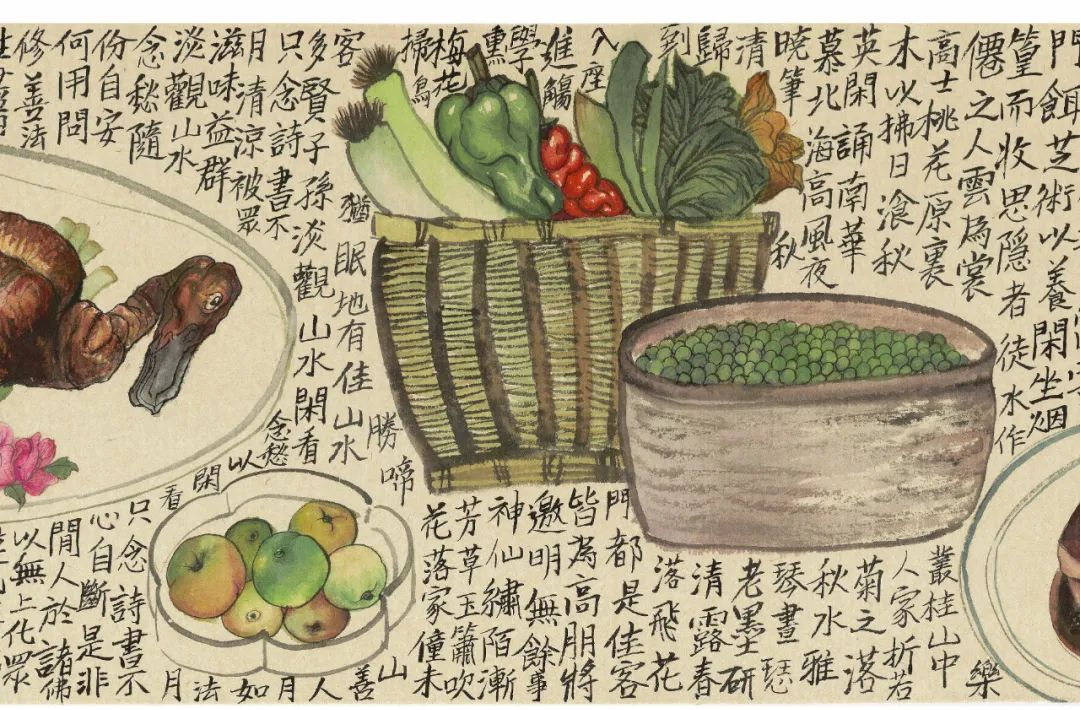 門餌芝術以養閑坐烟
篁而收思隱者徒水作
僊之人雲為裳
高士桃花原裏
木以拂日飡秋
英閑誦南華
慕北海高風夜
曉筆
秋
清
歸
到
入座
進觴
學
熏
梅花
掃鳥
客
猶眠地有佳山水勝啼
多賢子孫淡觀山水閑看
只念詩書不
念愁以閑看
月清涼被眾
滋味益群
淡觀山水
念愁隨
份自安
何用問
修善法
叢桂山中樂
人家折若
菊之落
秋水雅
琴畫瑟
老墨研
清露春
落飛花
門都是佳客
皆為高朋將
邀明無餘事
神仙繡陌漸
芳草玉簫吹
花落家僮未
山
善
人
月
如
法
月
只念詩書不
心自斷是非
閒人於諸佛
以無上化眾